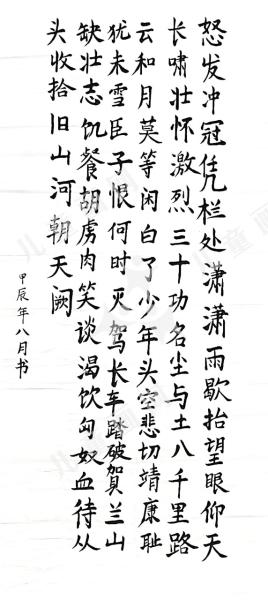 怒发冲冠凭栏处潇潇雨歇抬望眼仰天
长啸壮怀激烈三十功名尘与土八千里路
云和月莫等闲白了少年头空悲切靖康耻
犹未雪臣子恨何时灭驾长车踏破賀兰山
缺壮志饥餐胡虏肉笑谈渴饮匈奴血待从
头收拾旧山河朝天阙
甲辰年八月书